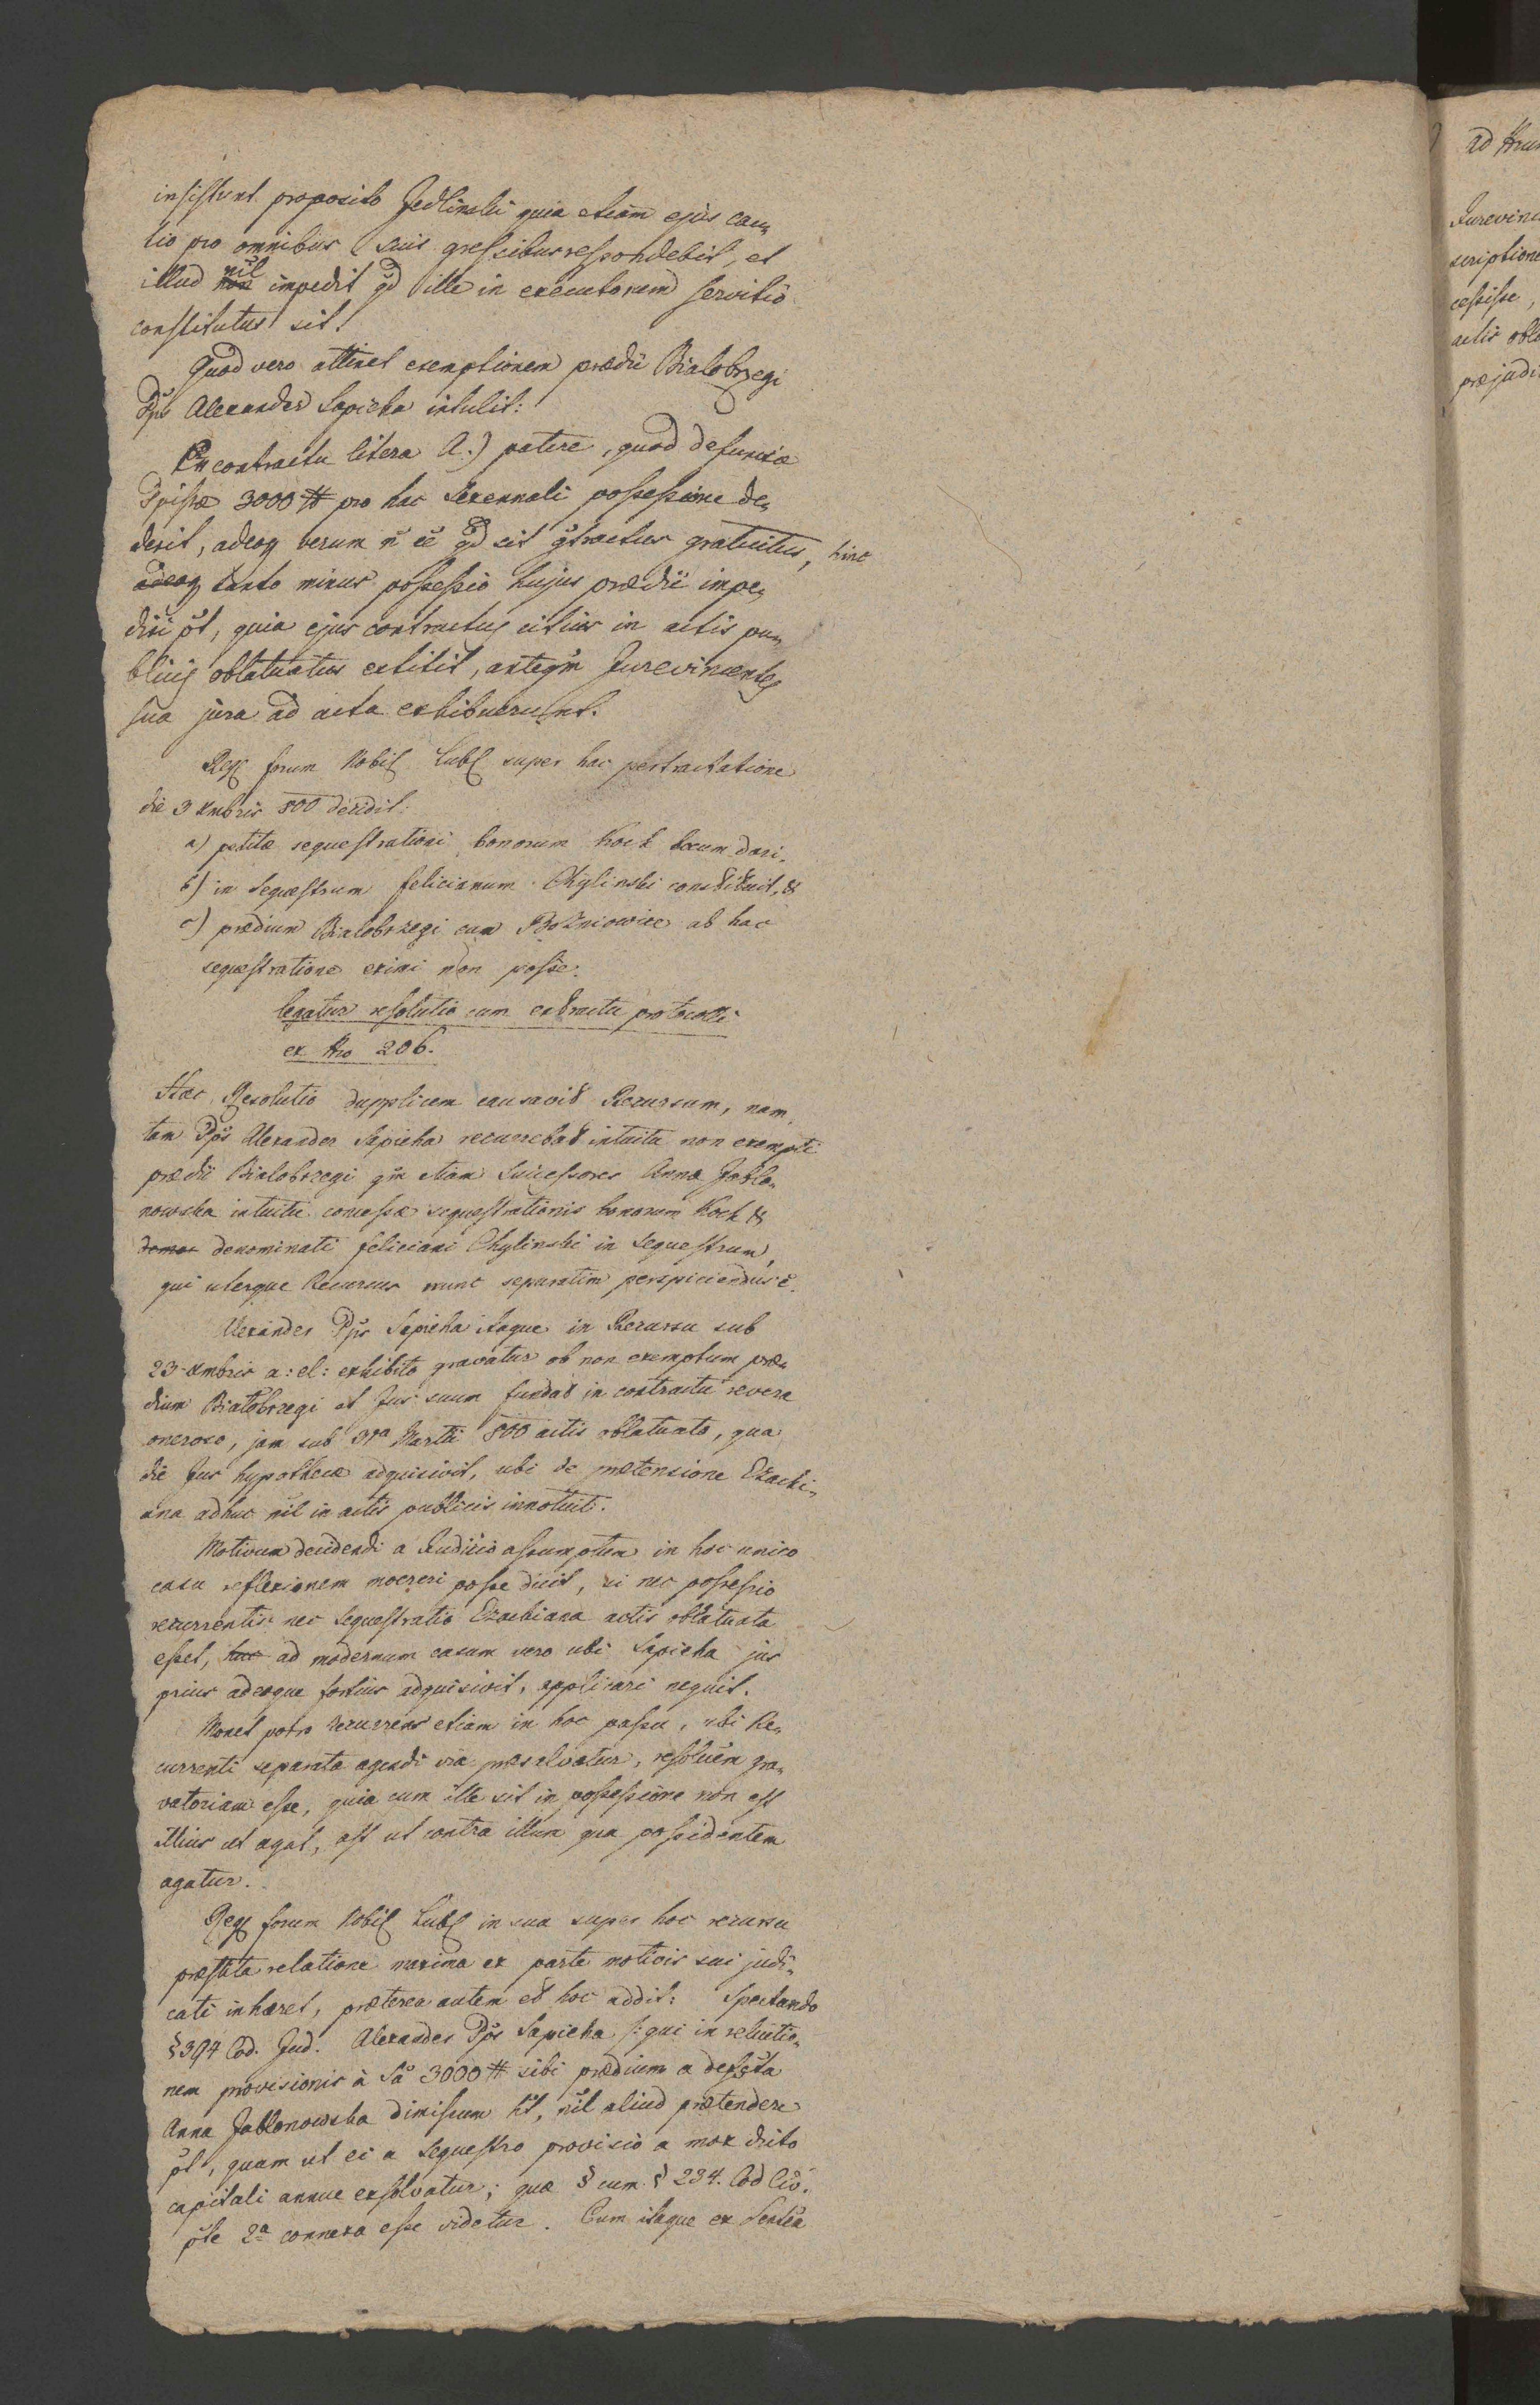 insistunt proposito Jedlinski quia etiam ejus cau„
tio pro omnibus suis gressibus respondebit, et
illud non nil impedit qd ille in executorum servitio
constitutus sit.
Quod vero attinet exemptionem prædii Bialobrzegi
Pps Alexander Sapieha intulit:
Ex contractu litera A.) patere, quod defunctæ
Ppissæ 3000 # pro hac sexennali possessione de„
derit, adeoq verum n ee qd sit gtractus gratuitus, hinc
adeoq tanto minus possessio hujus prædii impe„
diri pt, quia ejus contractus citius in actis pu„
blicis oblatuatus extitit, anteqm Jurevincentes
sua jura ad acta exhibuerunt.
Reg forum Nobil Lubl super hac pertractatione
die 3 Xmbris 800 decidit:
a) petitæ sequestrationi bonorum Kock locum dari.
b) in Sequestrum felicianum Chylinski constituit, &
c) prædium Bialobrzegi cum Pozniowice ab hac
sequestratione eximi non posse.
legatur resolutio cum extractu protocolli
ex Nro 206.
Hæc Resolutio dupplicem causavit Recursum, nam,
tam Pps Alexander Sapieha recurrebat intuitu non exempti
prædii Bialobrzegi qm etiam Successores Annæ Jablo„
nowska intuitu concessæ sequestrationis bonorum Kock &
denominati feliciani Chylinski in Sequestrum,
qui uterque Recursus nunc separatim perspiciendus e.
Alexander Pps Sapieha itaque in Recursu sub
23 Xmbris a: el: exhibito gravatur ob non exemptum præ„
dium Bialobrzegi et Jus suum fundat in contractu revera
oneroso, jam sub 31a Martii 800 actis oblatuato, qua
die Jus hypothecæ adquisivit, ubi de prætensione Ezachi„
ana adhuc nil in actis publicis innotuit.
Motivum decidendi a Judicio assumptum in hoc unico
casu reflexionem moereri posse dicit, si nec possessio
recurrentis nec Sequestratio Ezachiana actis oblatuata
esset, huc ad modernum casum vero ubi Sapieha jus
prius adeoque fortius adquisivit, applicari nequit.
Monet porro recurrens etiam in hoc passu, ubi Re„
currenti separata agendi via præsalvatur, resoluem gra„
vatoriam esse, quia cum ille sit in possessione non est
illius ut agat, ast ut contra illum qua possidentem
agatur.
Reg forum Nobil Lubl in sua super hoc recursu
præstita relatione maxima ex parte motivis sui judi„
cati inhæret, præterea autem et hoc addit: Spectando
§ 394 Cod. Jud. Alexander Pps Sapieha /: qui in relutio„
nem provisionis à Sa 3000 # sibi prædium a defcta
Anna Jablonowska dimissum ht, nil aliud prætendere
pt, quam ut ei a Sequestro provisio a mox dicto
capitali annue exsolvatur; quæ § cum § 234. Cod Civ.
pte 2a connexa esse videtur. Cum itaque ex Sentia
ad
Jurevinc
scriptione
cessisse,
actis obla
præjudi